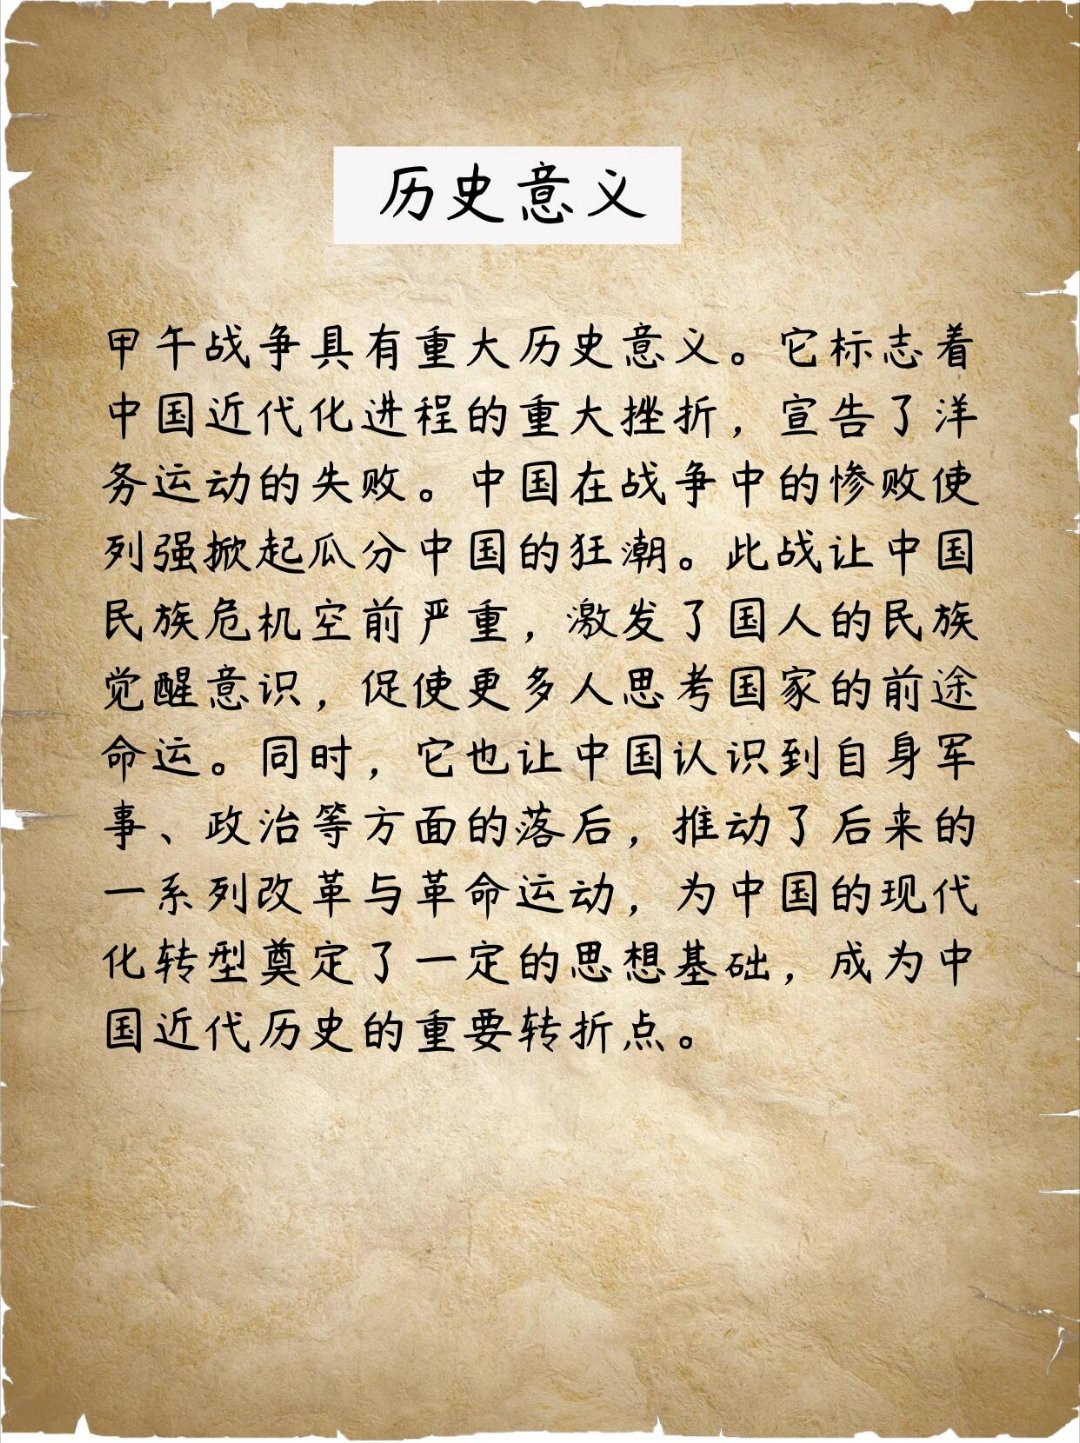 历史意义
甲午战争具有重大历史意义。它标志着
中国近代化进程的重大挫折，宣告了洋
务运动的失败。中国在战争中的惨败使
列强掀起瓜分中国的狂潮。此战让中国
民族危机空前严重，激发了国人的民族
觉醒意识，促使更多人思考国家的前途
命运。同时，它也让中国认识到自身军
事、政治等方面的落后，推动了后来的
一系列改革与革命运动，为中国的现代
化转型奠定了一定的思想基础，成为中
国近代历史的重要转折点。